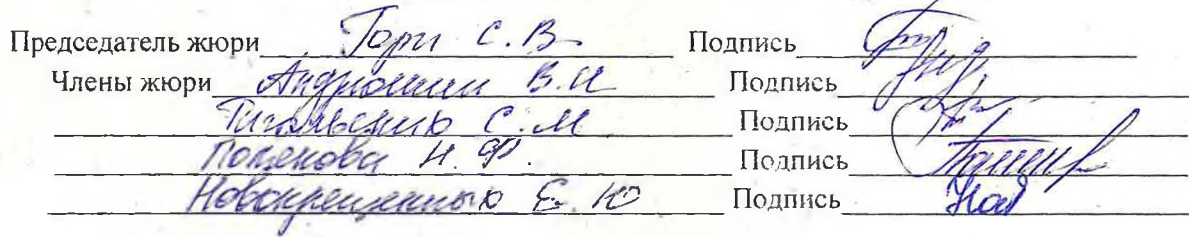 Председатель жюри С. В. Подпись
Члены жюри Андрюшин В. И Подпись
С. М Подпись
Полякова Н. Ф. Подпись
Новокрещенных Е. Ю Подпись